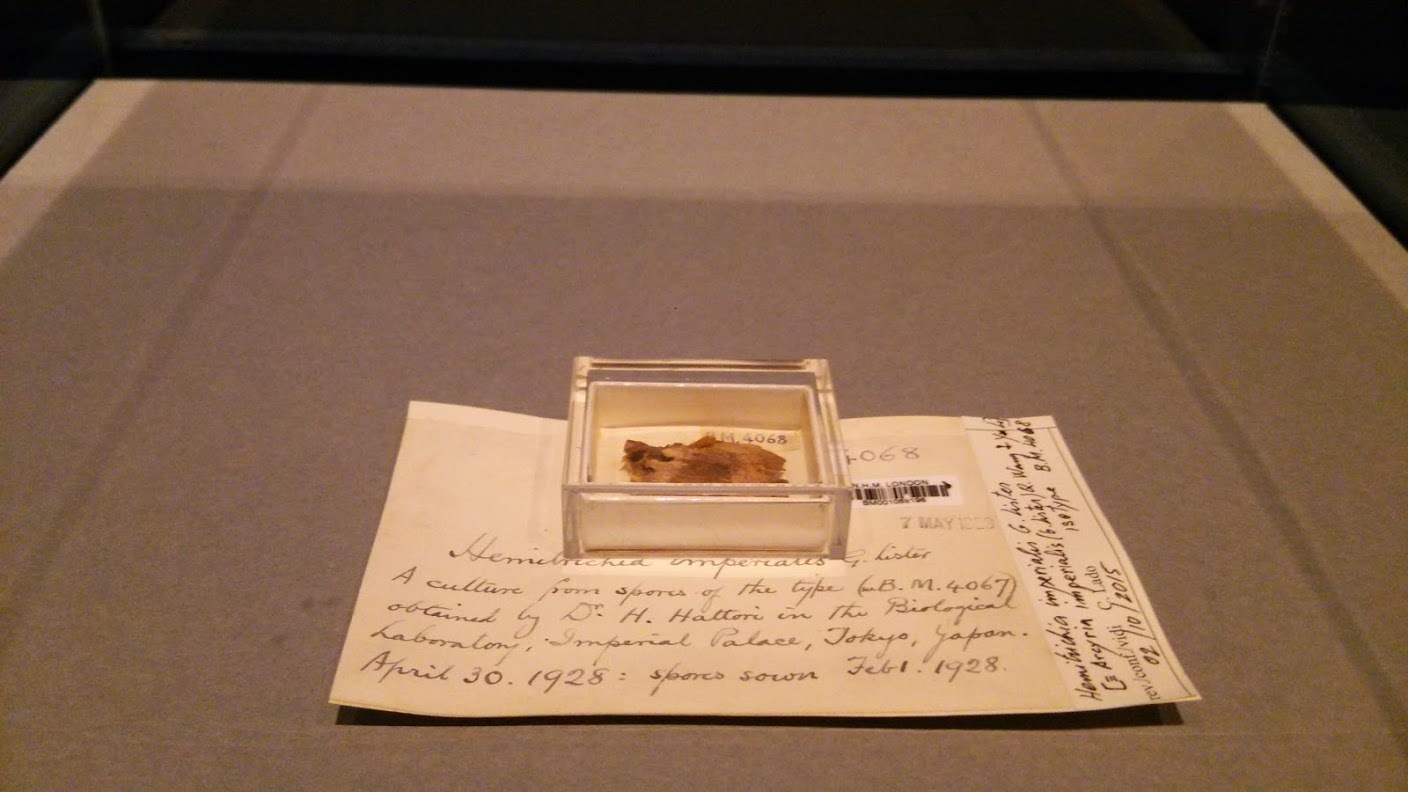 B.M. 4068
4068
N.H.M. LONDON
7 MAY
Hemitrichia imperialis G. Lister
A culture from spores of the type (=B.M. 4067)
obtained by Dr. H. Hattori in the Biological
Laboratory, Imperial Palace, Tokyo, Japan.
April 30. 1928 : spores sown Feb 1. 1928.
Hemitrichia imperialis G. Lister
[≡ Arcyria imperialis (G. Lister) Q. Wang & Yu Li]
isotype B.M. 4068
rev./conf./vidi C. Lado
02/10/2015